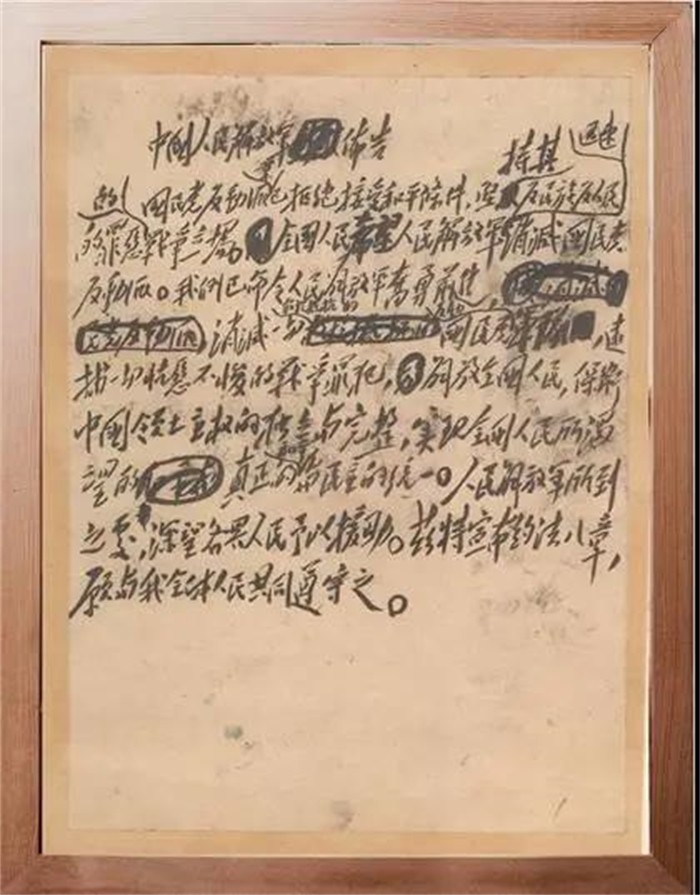 中国人民解放军佈告
持其 迅速
国民党反动派已拒绝接受和平条件,坚反民族反人民
的罪恶战争立场。全国人民希望人民解放军消灭国民党
反动派。我们已命令人民解放军奋勇前进,
消灭一切国民党军队,逮
捕一切怙恶不悛的战争罪犯,解放全国人民,保卫
中国领土主权的独立与完整,实现全国人民所渴
望的真正的民主的统一。人民解放军所到
之处,深望各界人民予以援助。兹特宣布约法八章,
愿与我全体人民共同遵守之。